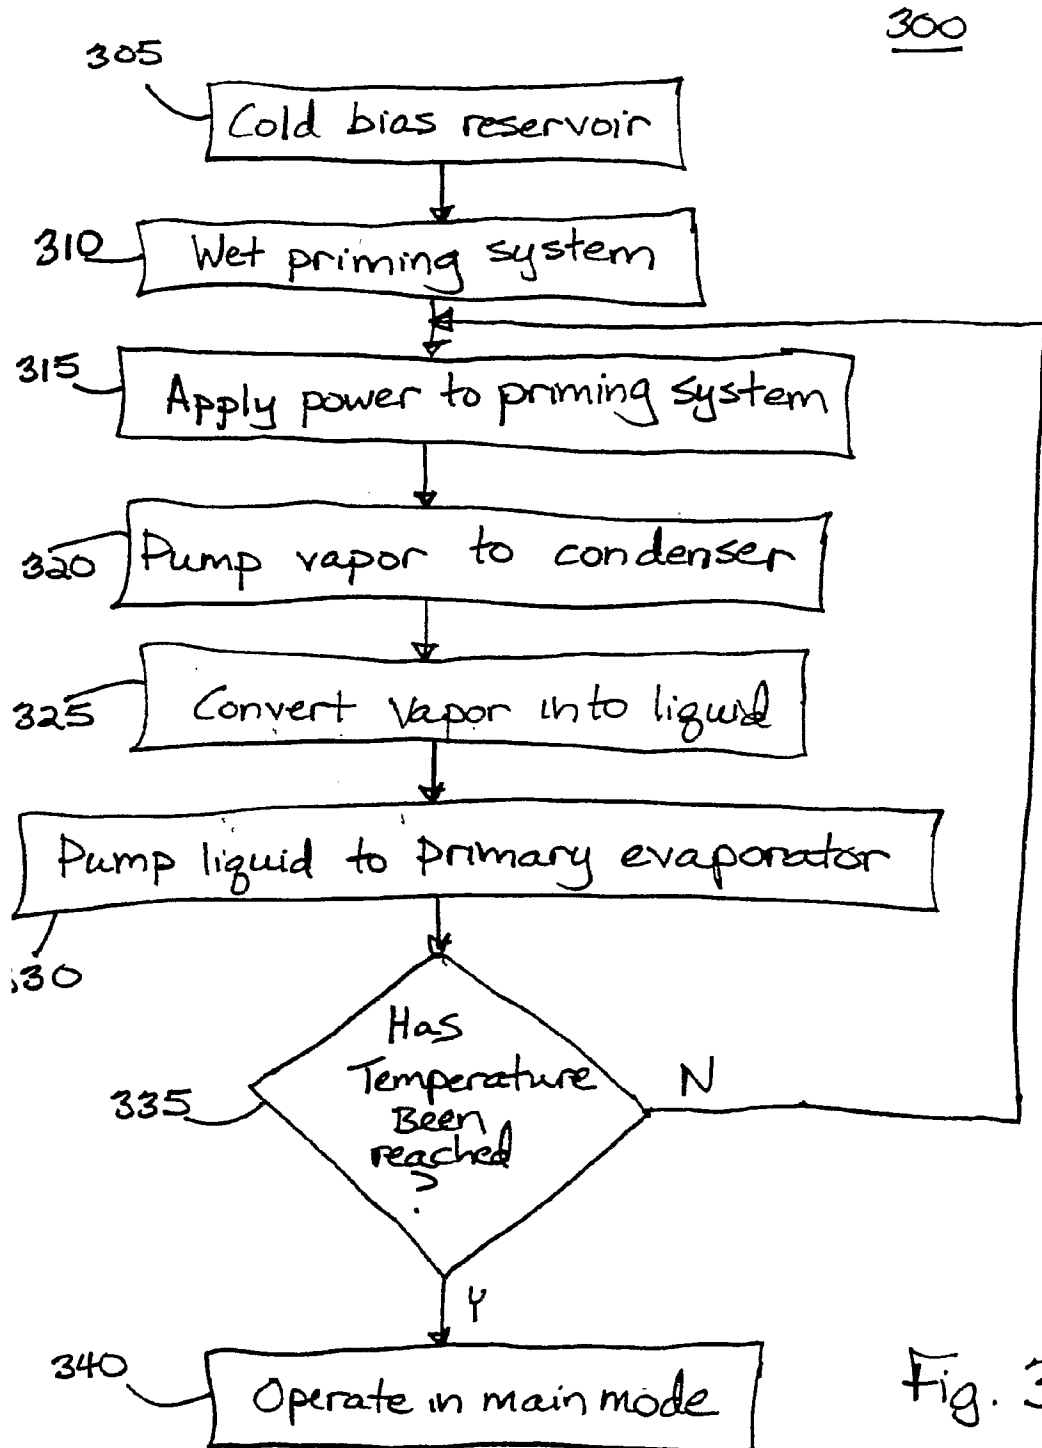 300
305
Cold bias reservoir
310
Wet priming system
315
Apply power to priming system
320
Pump vapor to condenser
325
Convert Vapor into liquid
Pump liquid to primary evaporator
330
Has
Temperature
Been
reached
?
335
N
Y
340
Operate in main mode
Fig. 3